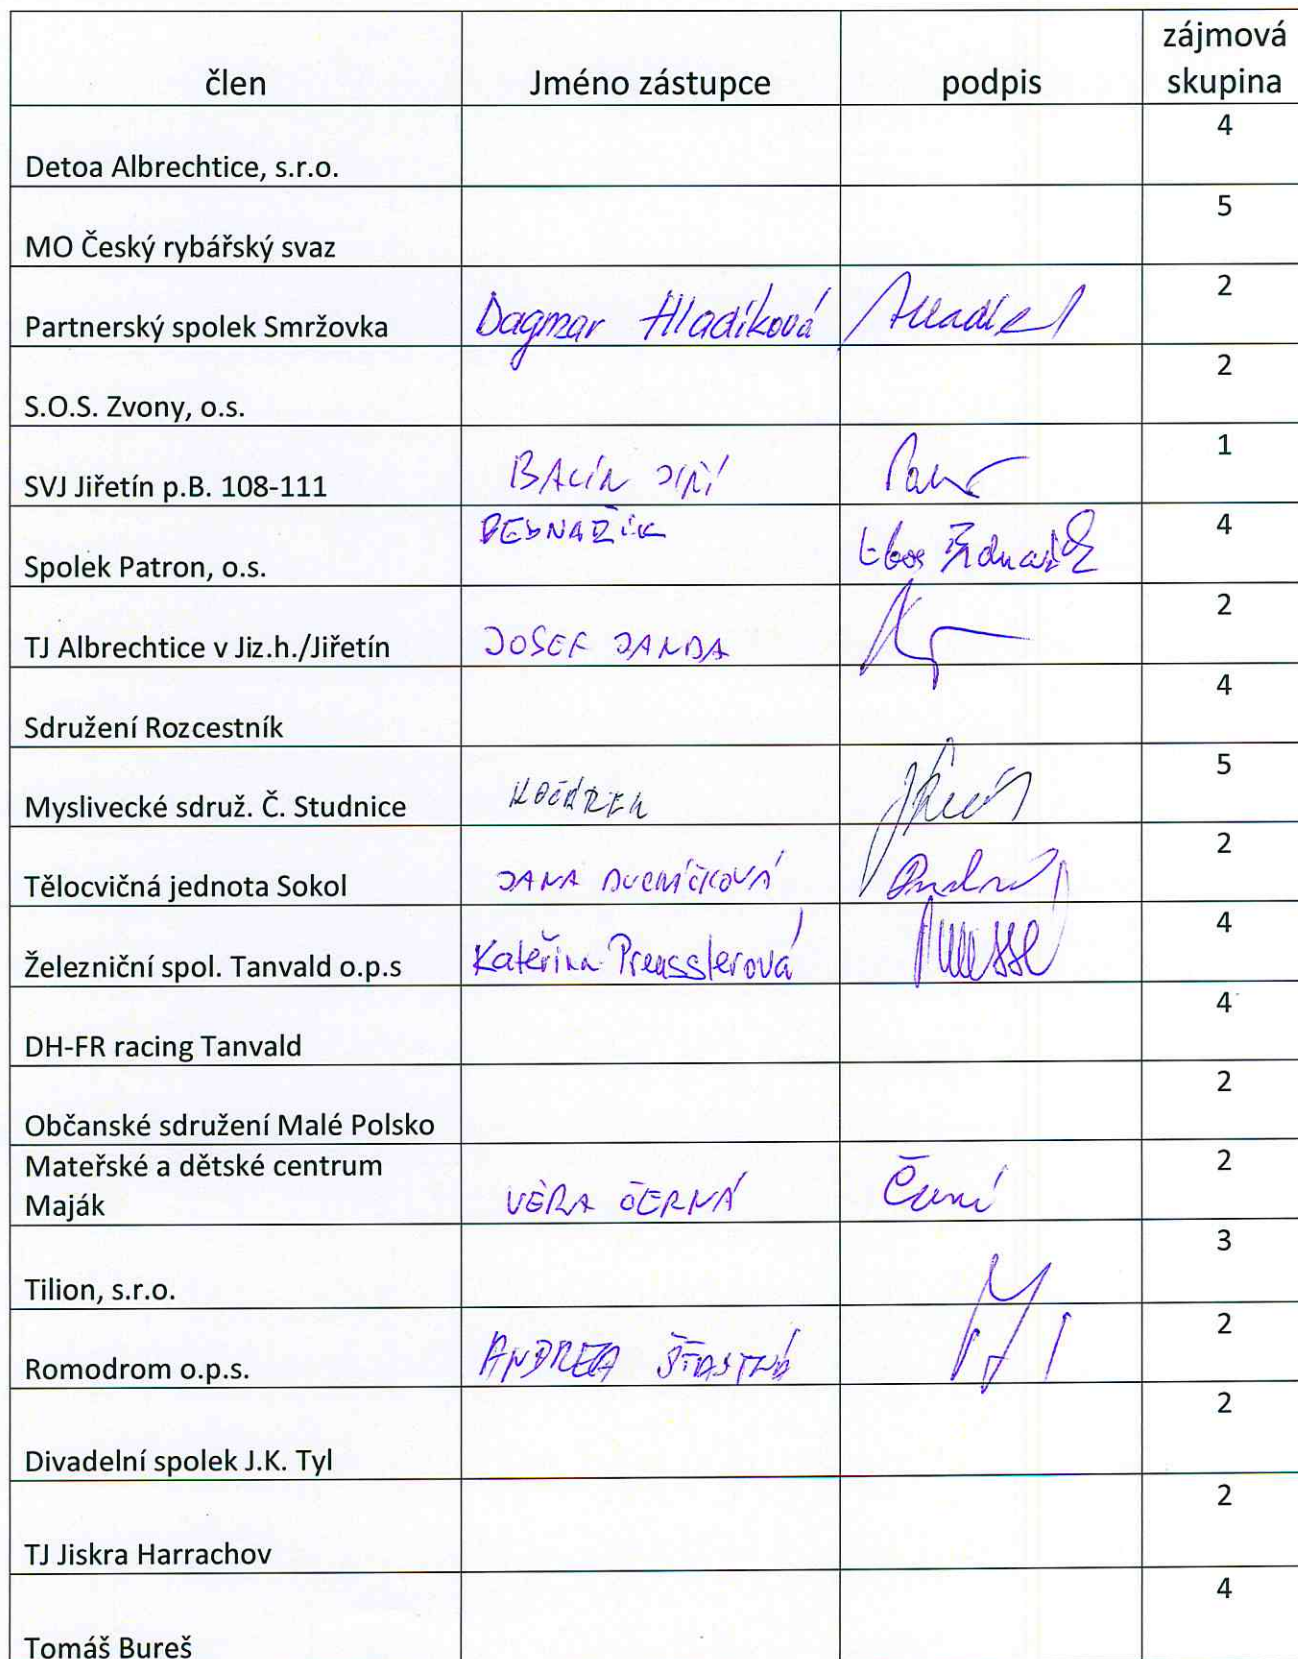 člen Jméno zástupce podpis zájmová skupina
Detoa Albrechtice, s.r.o. 4
MO Český rybářský svaz 5
Partnerský spolek Smržovka Dagmar Hladíková 2
S.O.S. Zvony, o.s. 2
SVJ Jiřetín p.B. 108-111 JIŘÍ 1
Spolek Patron, o.s. BEDNAŘÍK 4
TJ Albrechtice v Jiz.h./Jiřetín JOSEF JANDA 2
Sdružení Rozcestník 4
Myslivecké sdruž. Č. Studnice 5
Tělocvičná jednota Sokol JANA 2
Železniční spol. Tanvald o.p.s Kateřina Preusslerová 4
DH-FR racing Tanvald 4
Občanské sdružení Malé Polsko 2
Mateřské a dětské centrum
Maják VĚRA ČERNÁ 2
Tilion, s.r.o. 3
Romodrom o.p.s. ANDREA ŠŤASTNÁ 2
Divadelní spolek J.K. Tyl 2
TJ Jiskra Harrachov 2
Tomáš Bureš 4